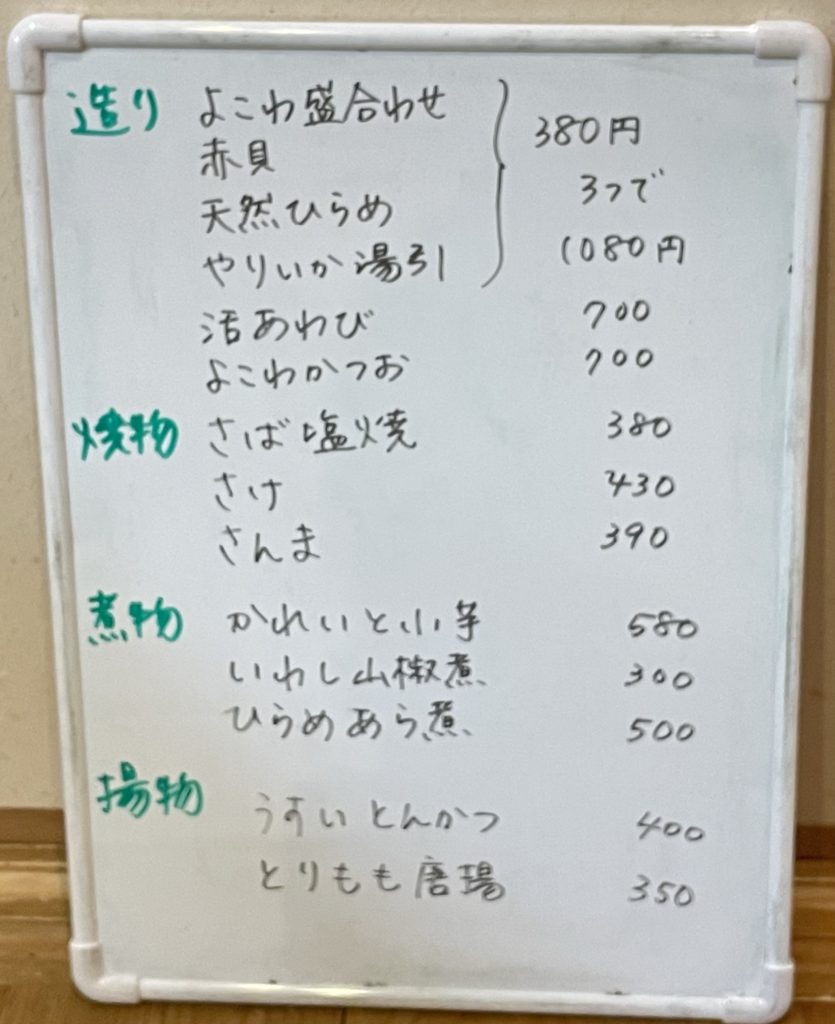 造り よこわ盛合わせ 380円
赤貝
天然ひらめ 3つで
やりいか湯引 1080円
活あわび 700
よこわかつお 700
焼物 さば塩焼 380
さけ 430
さんま 390
煮物 かれいと小芋 580
いわし山椒煮 300
ひらめあら煮 500
揚物
うすいとんかつ 400
とりもも唐揚 350